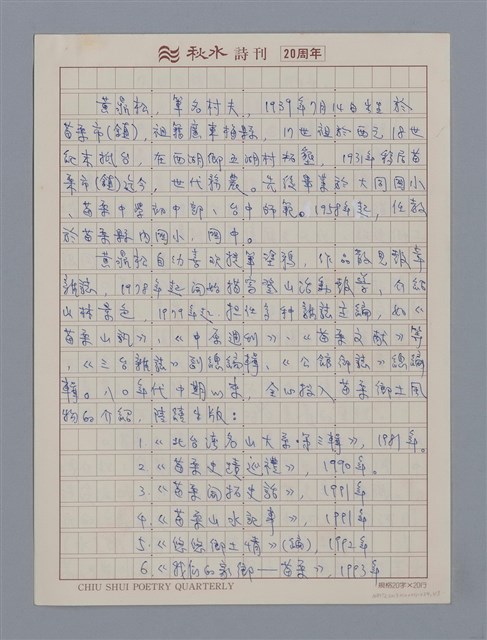 秋水 詩刊 20周年
黃鼎松，筆名村夫，1939年7月14日出生於
苗栗市(鎮)，祖籍廣東梅縣，17世祖於西元18世
紀末抵台，在西湖鄉五湖村拓墾，1931年移居苗
栗市(鎮)迄今，世代務農。先後畢業於大同國小
、苗栗中學初中部、台中師範。1958年起，任教
於苗栗縣內國小、國中。
黃鼎松自幼喜歡提筆塗鴉，作品散見報章
雜誌，1978年起開始撰寫登山活動報導，介紹
山林景色，1979年起，擔任多種雜誌主編，如《
苗栗山訊》、《中原週刊》、《苗栗文獻》等
，《三台雜誌》副總編輯、《公館鄉誌》總編
輯。八〇年代中期以來，全心投入苗栗鄉土風
物的介紹，陸續出版：
1.《北台灣名山大系·第三輯》，1981年。
2.《苗栗史蹟巡禮》，1990年。
3.《苗栗開拓史話》，1991年
4.《苗栗山水記事》，1991年
5.《綿綿鄉土情》(編)，1992年
6.《我們的家鄉——苗栗》，1993年
CHIU SHUI POETRY QUARTERLY 規格20字×20行